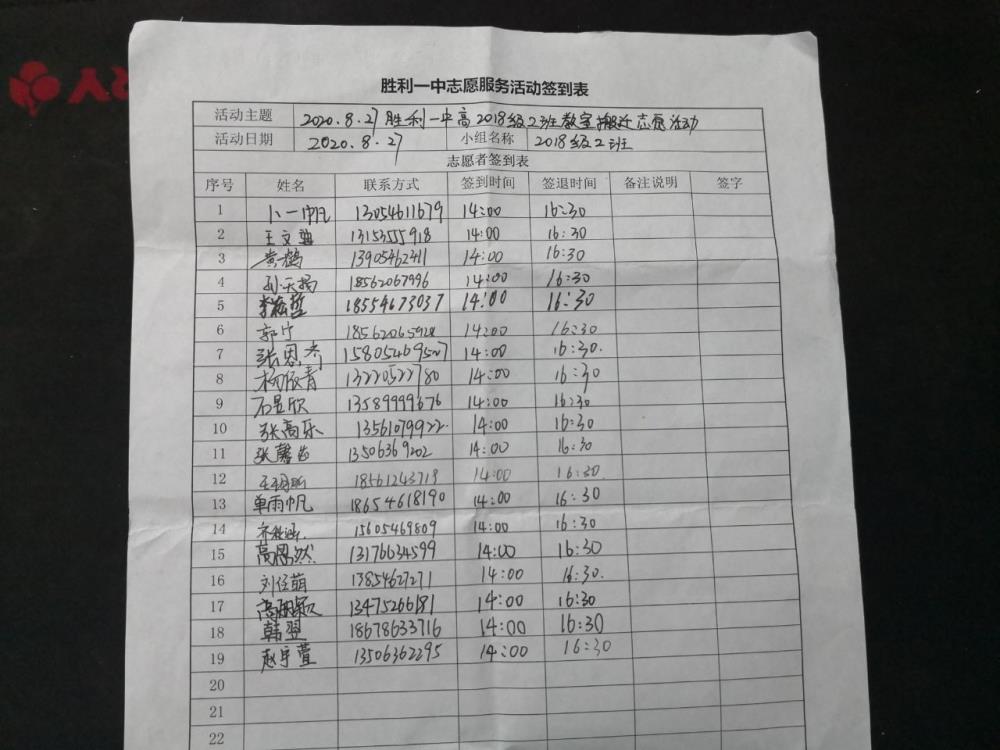 胜利一中志愿服务活动签到表
活动主题 2020.8.27胜利一中高2018级2班教室搬迁志愿活动
活动日期 2020.8.27 小组名称 2018级2班
志愿者签到表
序号 姓名 联系方式 签到时间 签退时间 备注说明 签字
1 卜一帆 13054611679 14:00 16:30
2 王文 13153555918 14:00 16:30
3 黄鹤 13905462411 14:00 16:30
4 孙天扬 18562067996 14:00 16:30
5 18554673037 14:00 16:30
6 郭宁 18562065928 14:00 16:30
7 张恩齐 15805469507 14:00 16:30.
8 杨依青 13220522780 14:00 16:30
9 石昱欣 13589999676 14:00 16:30
10 张高乐 13561079922 14:00 16:30
11 张馨 13506369202 14:00 16:30
12 18561243719 14:00 16:30
13 单雨帆 18654618190 14:00 16:30
14 15605469809 14:00 16:30
15 高思然 13176634599 14:00 16:30
16 刘任萌 13854627271 14:00 16:30.
17 高颖 13475266181 14:00 16:30
18 韩翌 18678633716 14:00 16:30
19 赵宇萱 13506362295 14:00 16:30
20
21
22